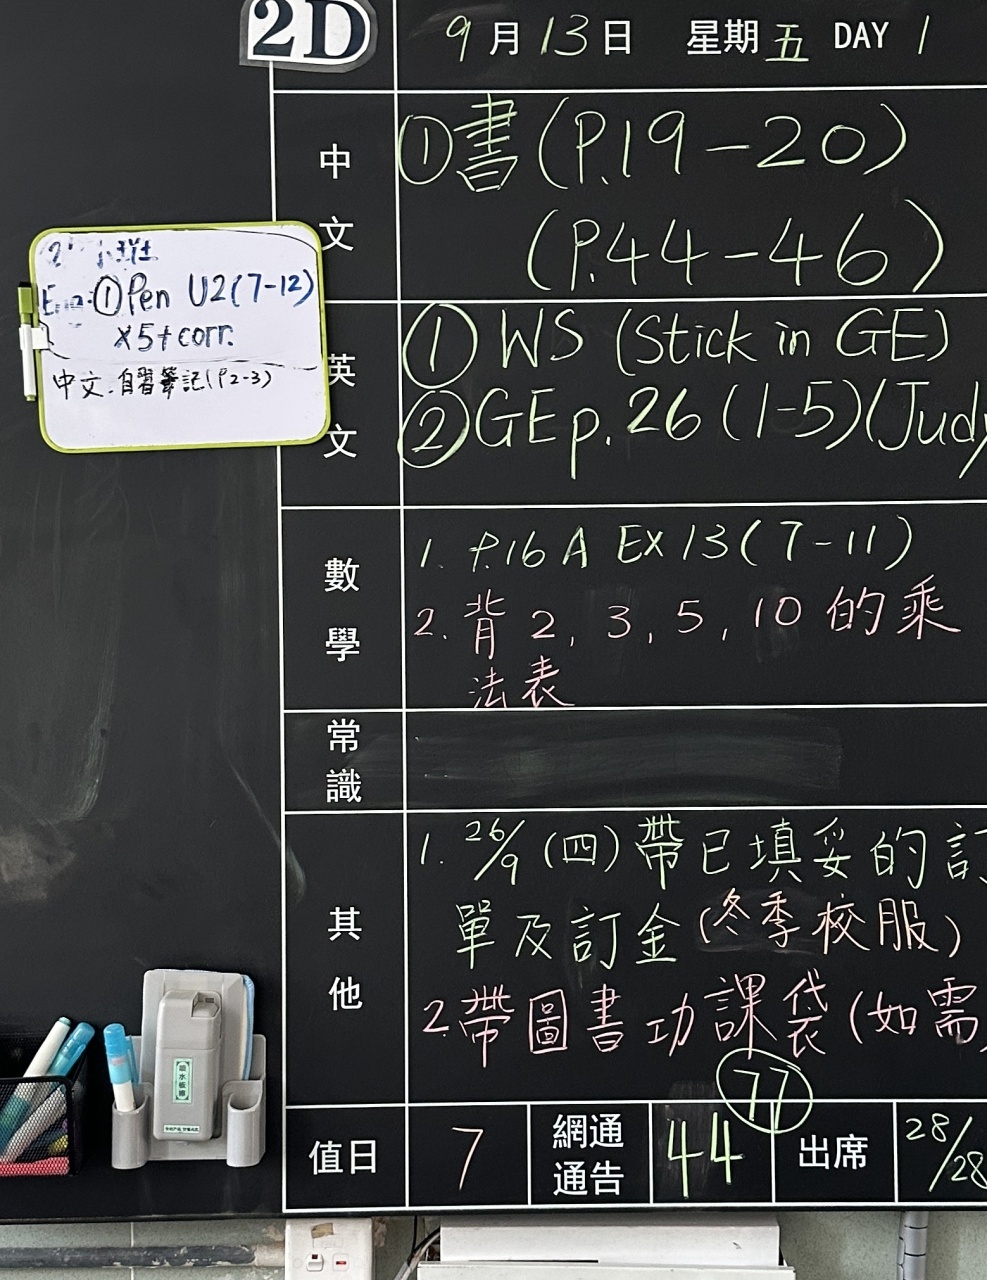 2D
9月13日 星期五 DAY 1
中文
①書(P.19-20)
(P.44-46)
英文
①WS (Stick in GE)
②GE p.26 (1-5)(Judy
數學
1. P.16 A EX 13(7-11)
2. 背 2, 3, 5, 10 的乘
法表
常識
其他
1. 26/9 (四) 帶已填妥的訂
單及訂金(冬季校服)
2. 帶圖書功課袋(如需
77
值日 7 網通通告 44 出席 28/28
Eng.①Pen U2(7-12)
x5+corr.
中文.自習筆記(P2-3)
吸水板擦